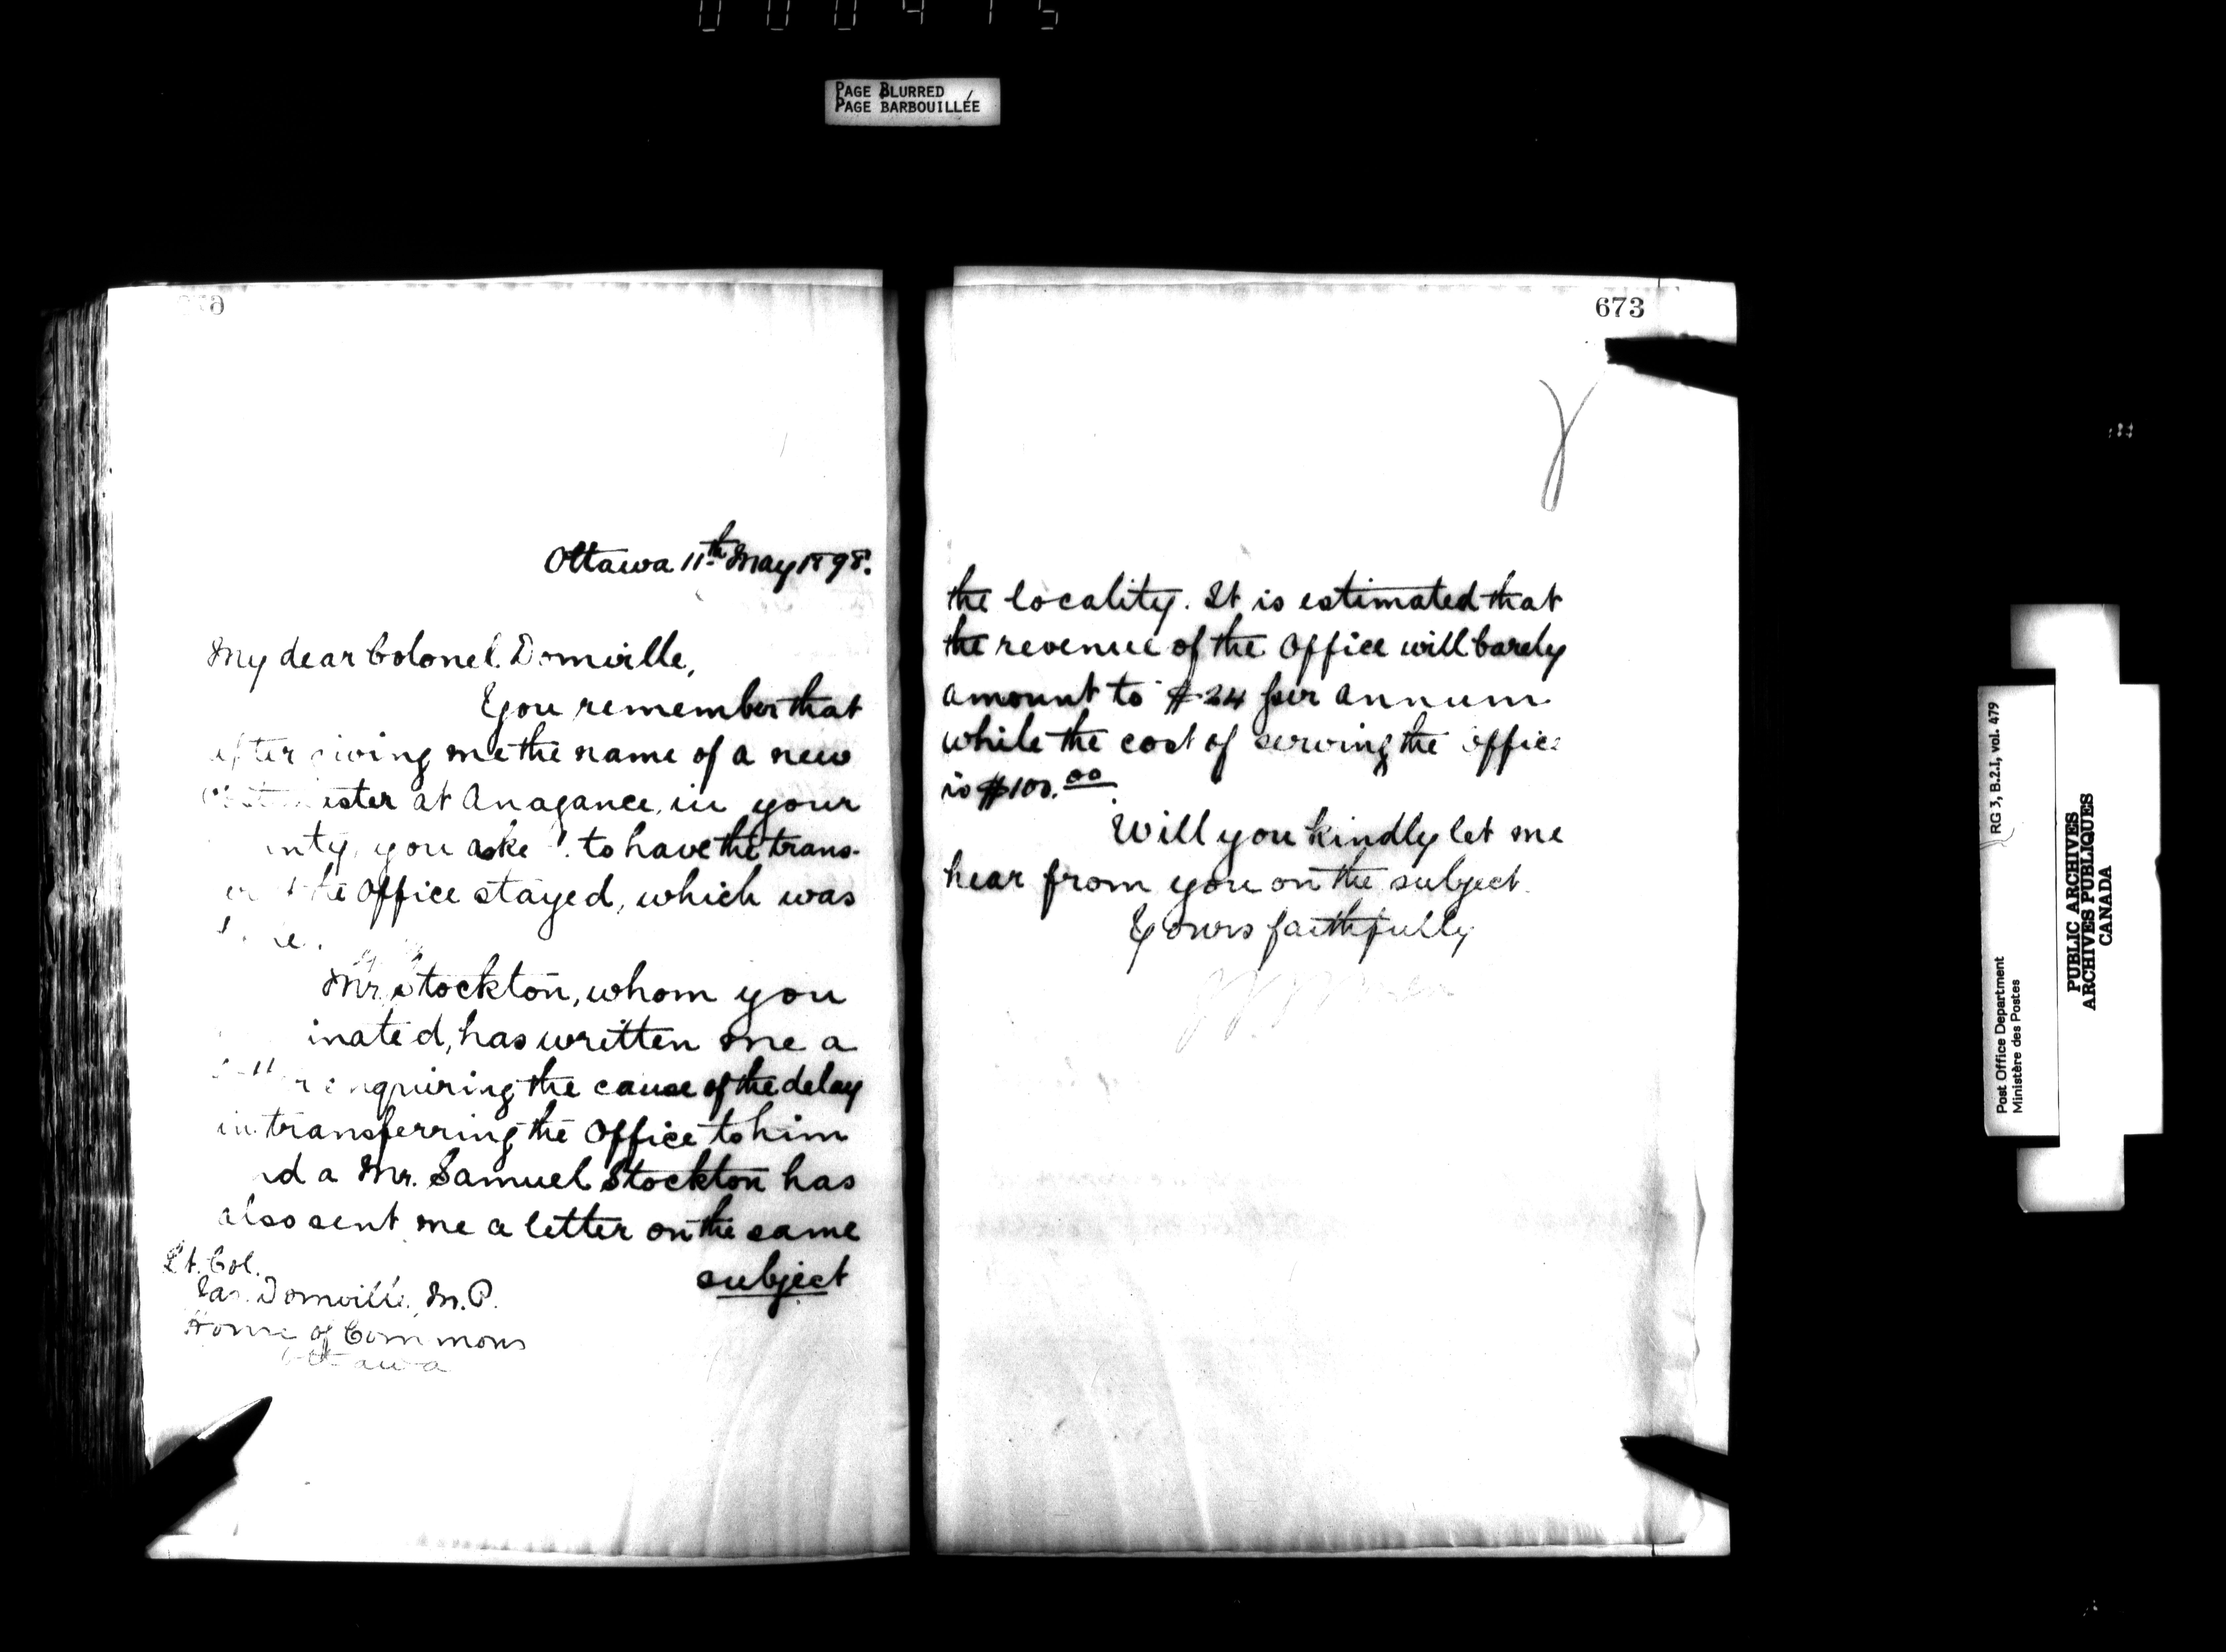 000475
PAGE BLURRED
PAGE BARBOUILLÉE
673
Ottawa 11th May 1898.
My dear Colonel Domville,
You remember that
after giving me the name of a new
at Anagance, in your
you to have the trans-
the Office stayed, which was
Mr. Stockton, whom you
has written me a
enquiring the cause of the delay
in transferring the Office to him
a Mr. Samuel Stockton has
also sent me a letter on the same
subject
Lt. Col.
Jas. Domville, M.P.
House of Commons
Ottawa
the locality. It is estimated that
the revenue of the Office will barely
amount to $24 per annum
while the cost of serving the office
is $100.00.
Will you kindly let me
hear from you on the subject.
Yours faithfully
RG 3, B.2.1, vol. 479
Post Office Department
Ministère des Postes
PUBLIC ARCHIVES
ARCHIVES PUBLIQUES
CANADA